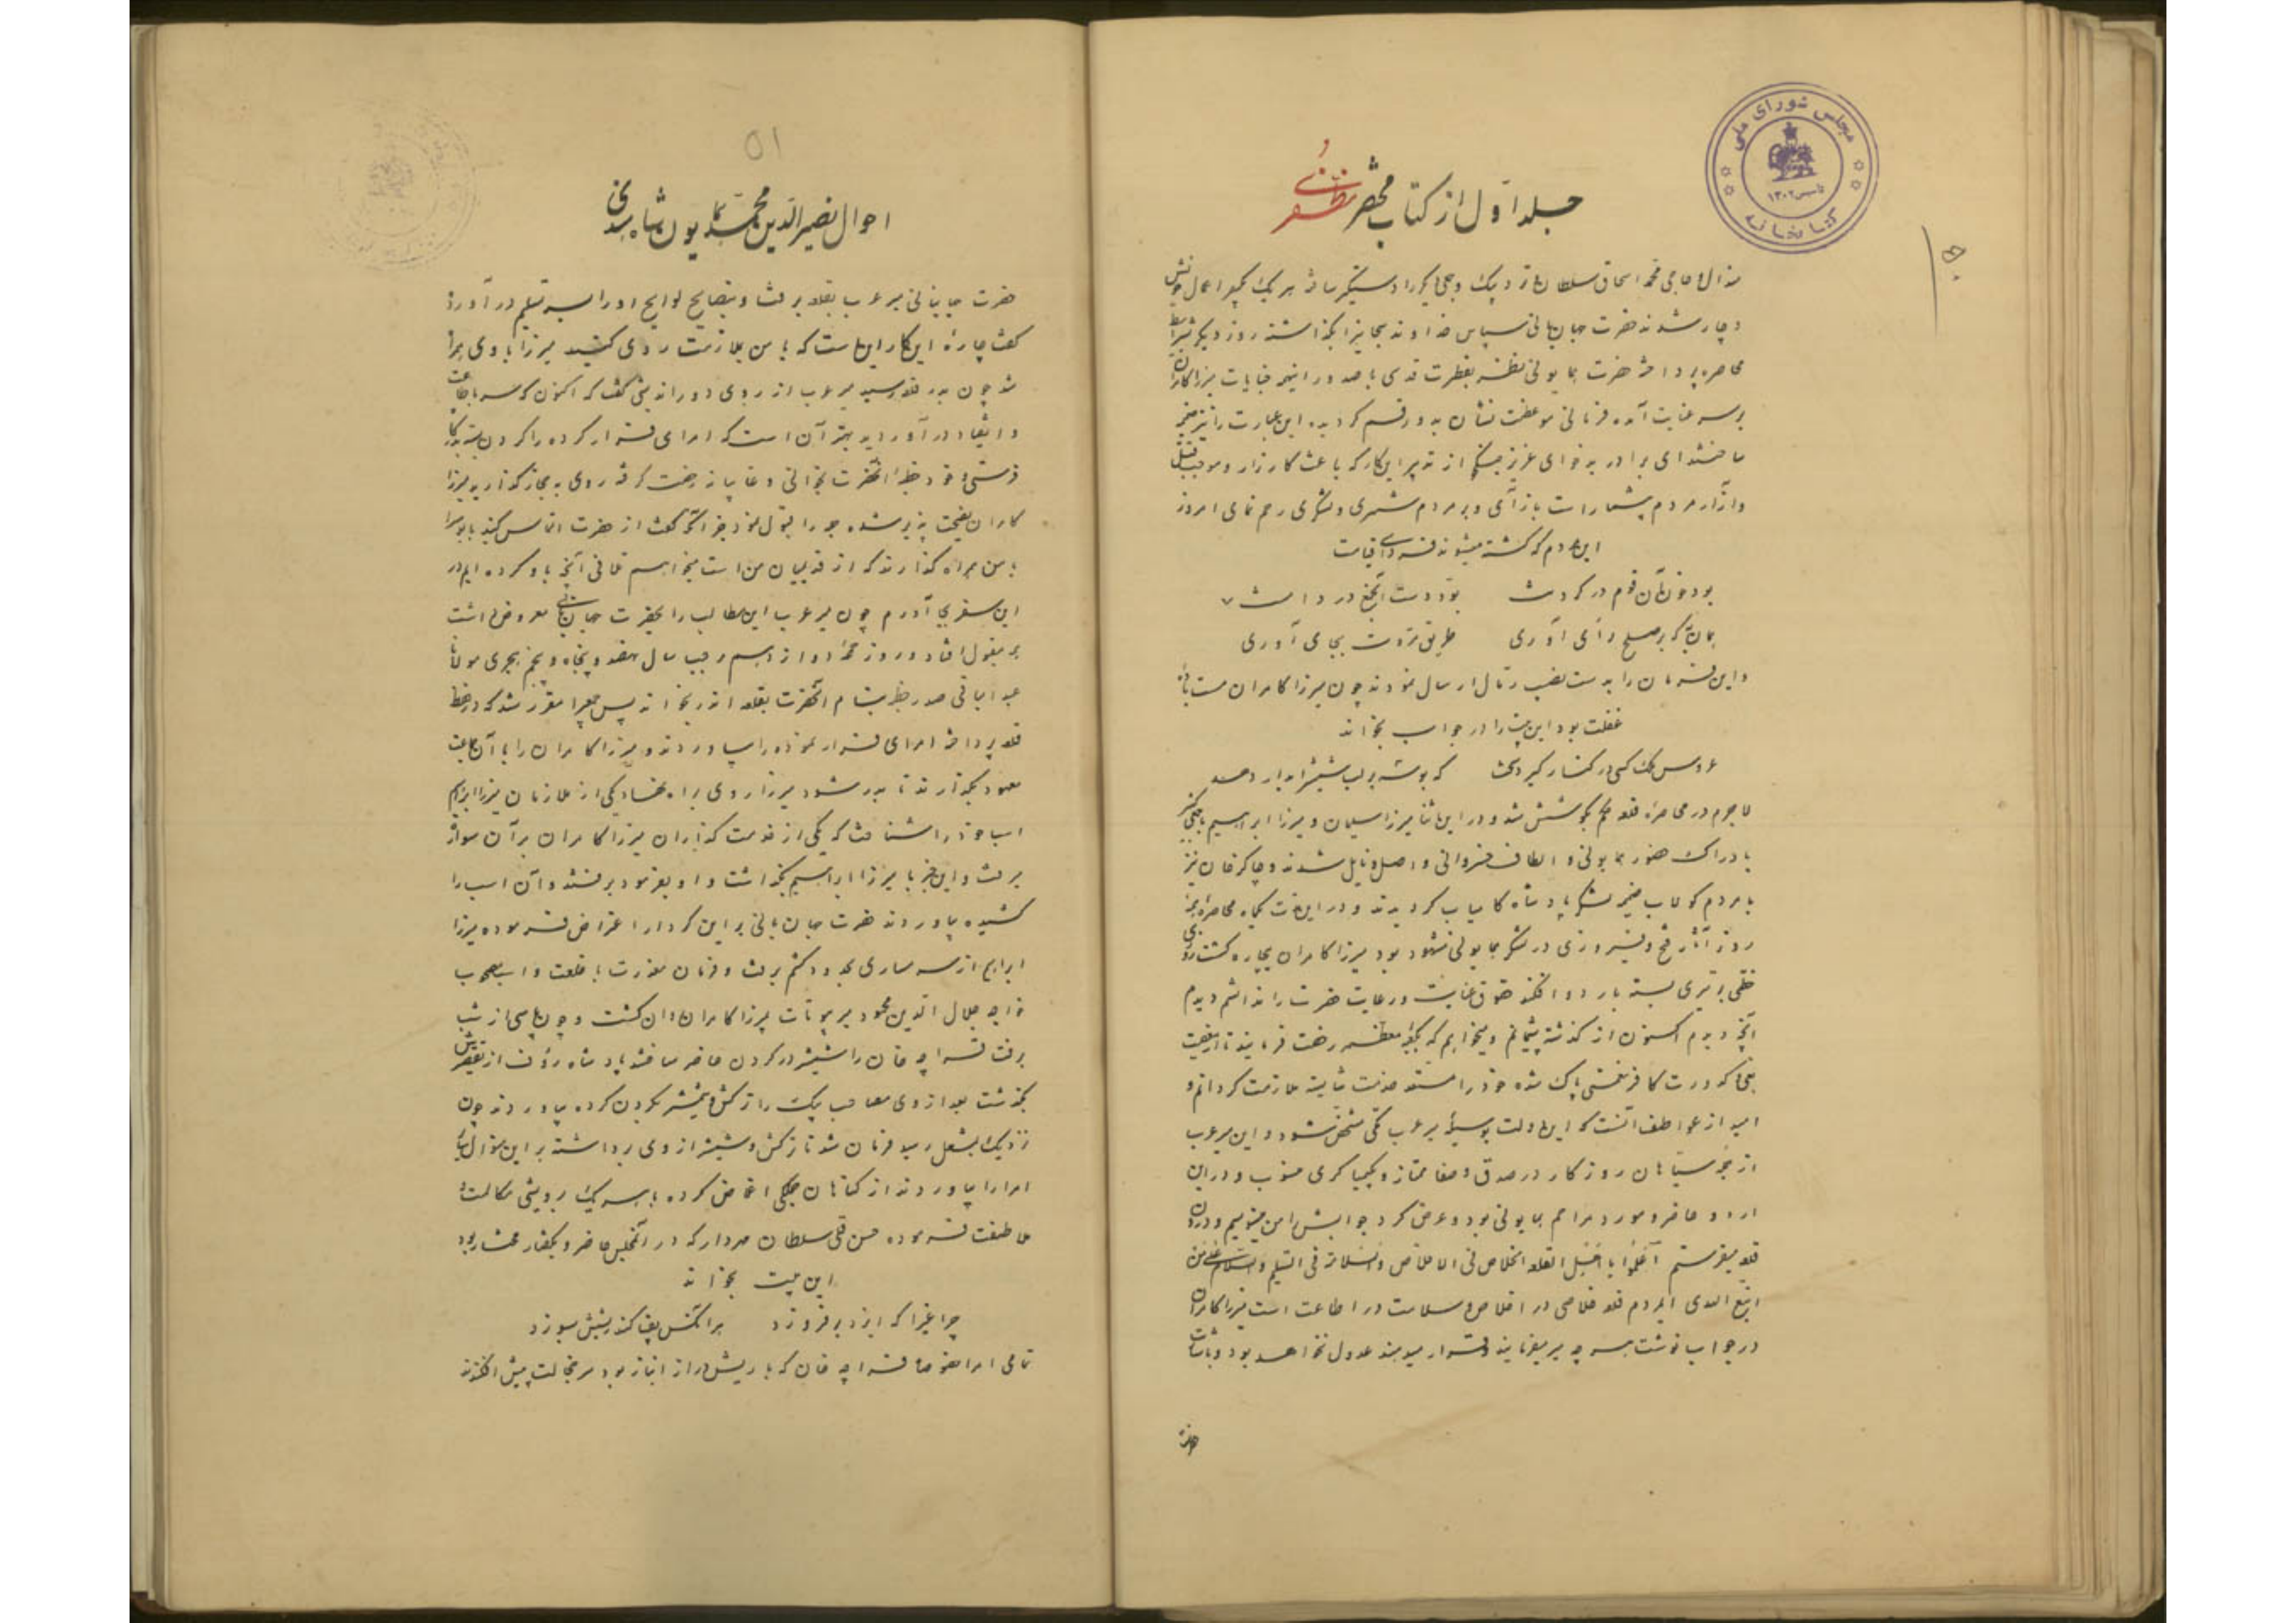 مجلس شورای ملی
تاسیس ۱۳۰۲
کتابخانه
جلد اول از کتاب مختصر مظفری
دچار شدند حضرت جهانبانی سپاس خداوند بجا
محاصره پرداخت حضرت همایونی بفطرت قدسی با صدور اینهمه جنایات میرزا کامران
بر سر عنایت آمده فرمانی موعظت نشان بدو رقم گردید این عبارت را نیز
ساختند ای برادر بدخوی عزیز جنگجو از تدبیر این کار که باعث کارزار و موجب قتل
و آزار مردم بیشمار است باز آی و بر مردم شهری و لشکری رحم نمای امروز
این مردم که کشته میشوند فردای قیامت
بود خون آن قوم در گردنت بود دست آن جمع در دامنت
همان به که بر صلح رای آوری طریق مروت بجای آوری
و این فرمان را بدست نصیب رمال ارسال نمودند چون میرزا کامران مست باده
غفلت بود این بیت را در جواب بخواند
عروس ملک کسی در کنار گیرد که بوسه بر لب شمشیر آبدار دهد
لاجرم در محاصره قلعه کوشش شد و در این اثنا میرزا سلیمان و میرزا ابراهیم
بادراک حضور همایونی و الطاف خسروانی واصل و نایل شدند و چاکر خان نیز
با مردم کولاب ضمیمه لشکر پادشاه کامیاب گردیدند و در این مدت یکماه محاصره
روز آثار فتح و فیروزی در لشکر همایونی مشهود بود میرزا کامران بیچاره گشت
خطی بر تیری بسته باردو افکند حقوق عنایت و رعایت حضرت را ندانستم دیدم
آنچه دیدم اکنون از گذشته پشیمانم و میخواهم که بکعبه معظمه رخصت فرمایند تا از
کدورت کافر نعمتی پاک شده خود را مستعد خدمت شایسته ملازمت گردانم و
امید از عواطف آنست که این دولت بوسیله میر عرب مکی مشخص شود و این میر عرب
از سیاهان روزگار در صدق و صفا ممتاز و بکیمیاگری منسوب و در این
اردو حاضر و مورد مراحم همایونی بود و عرض کرد جوابش را من مینویسم و
قلعه میفرستم اعلموا یا اهل القلعه الخلاص فی الاخلاص و السلامة فی التسلیم والسلام علی من
اتبع الهدی ای مردم قلعه خلاصی در اخلاص و سلامت در اطاعت است میرزا کامران
در جواب نوشت هر چه میر میفرمایند قرار میدهند عدول نخواهد بود
۵۱
احوال نصیر الدین محمد همایون شاه
حضرت جهانبانی میر عرب بقلعه برفت و بنصایح لوایح او را سر تسلیم در آورد
گفت چاره این کار این است که با من بملازمت روی کنید میرزا با وی همراه
شد چون بدر قلعه رسید میر عرب از روی دوراندیشی گفت که اکنون که سر باطاعت
و انقیاد در آورده اید بهتر آن است که امرای فرار کرده را گردن بسته بدرگاه
فرستی و خود خطبه آنحضرت بخوانی و غایبانه رخصت گرفته روی به حجاز گذاری میرزا
کامران نصیحت پذیر شده جمله را قبول نمود جز آنکه گفت از حضرت التماس کنید بابوس را
با من همراه گذارند که از قدیمیان من است میخواهم تلافی آنچه باو کرده ام در
این سفر بجا آورم چون میر عرب این مطالب را بحضرت جهانبانی معروض داشت
همه مقبول افتاد و روز جمعه دوازدهم رجب سال نهصد و پنجاه و پنجم هجری مولانا
عبدالباقی صدر خطبه بنام آنحضرت بقلعه اندر بخواند پس مقرر شد که در حفظ
قلعه پرداخته امرای فرار نموده را بیاوردند و میرزا کامران را با آن جماعت
معهود بگذارند تا بدر شود میرزا روی براه نهاد یکی از ملازمان میرزا ابراهیم
اسب خود را شناخت که یکی از خدمت گذاران میرزا کامران بر آن سوار
برفت و این خبر با میرزا ابراهیم بگذاشت و او بفرمود برفتند و آن اسب را
کشیده بیاوردند حضرت جهانبانی بر این کردار اعتراض فرموده میرزا
ابراهیم از شرمساری بحدود کشم برفت و فرمان معذرت با خلعت و اسب مصحوب
خواجه جلال الدین محمود میر بیوتات میرزا کامران روان گشت و چون پاسی از شب
برفت قراچه خان را شمشیر در گردن حاضر ساختند پادشاه رؤف از تقصیرش
بگذشت بعد از وی مصاحب بیک را ترکش و شمشیر بگردن کرده بیاوردند چون
نزدیک مشعل رسید فرمان شد تا ترکش و شمشیر از وی برداشته بر این منوال سایر
امرا را بیاوردند از گناهان همگی اغماض کرده با هر یک بروشی مکالمت و
ملاطفت فرموده حسن قلی سلطان مهردار که در آن مجلس حاضر و بگفتار مختار بود
این بیت بخواند
چراغی را که ایزد بر فروزد هر آنکس پف کند ریشش بسوزد
تمامی امرا خصوصا قراچه خان که با ریش دراز انباز بود سر خجالت پیش افکندند